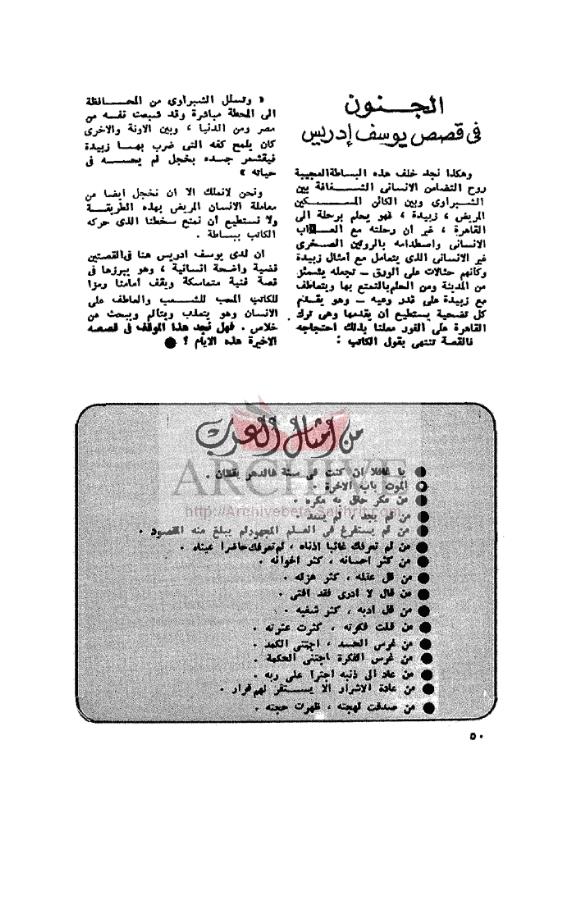 الجنون
فى قصص يوسف إدريس
وهكذا نجد خلف هذه البساطة العجيبة
روح التضامن الانسانى الشفافة بين
الشبراوى وبين الكائن المسكين
المريض ، زبيدة ، فهو يحلم برحلة الى
القاهرة ، غير ان رحلته مع
الانسانى واصطدامه بالروتين الصخرى
غير الانسانى الذى يتعامل مع أمثال زبيدة
وكأنهم حثالات على الورق - تجعله يشمئز
من المدينة ومن الحلم بالتمتع بها ويتعاطف
مع زبيدة على قدر وعيه - وهو يقدم
كل تضحية يستطيع ان يقدمها وهى ترك
القاهرة على الفور معلنا بذلك احتجاجه
فالقصة تنتهى بقول الكاتب :
« وتسلل الشبراوى من المحافظة
الى المحطة مباشرة وقد شبعت نفسه من
مصر ومن الدنيا ، وبين الاونة والاخرى
كان يلمح كفه التى ضرب بها زبيدة
فيقشعر جسده بخجل لم يحسه فى
حياته »
ونحن لانملك الا ان نخجل ايضا من
معاملة الانسان المريض بهذه الطريقة
ولا نستطيع أن نمنع سخطنا الذى حركه
الكاتب ببساطة .
ان لدى يوسف ادريس هنا فى القصتين
قضية واضحة انسانية ، وهو يبرزها فى
قصة فنية متماسكة ويقف أمامنا رمزا
للكاتب المحب للشعب والعاطف على
الانسان وهو يتعذب ويتألم ويبحث عن
خلاص . فهل نجد هذا الموقف فى قصصه
الاخيرة هذه الايام ؟ ●
من أمثال العرب
● يا غافلا ان كنت فى سنة فالدهر يقظان .
● الموت باب الاخرة .
● من مكر حاق به مكره .
● من لم يجد ، لم يسد .
● من لم يستفرغ فى العلم المجهود لم يبلغ منه المقصود .
● من لم تعرفك غائبا اذناه ، لم تعرفك حاضرا عيناه .
● من كثر احسانه ، كثر اخوانه .
● من قل عقله ، كثر هزله .
● من قال لا أدرى فقد افتى .
● من قل ادبه ، كثر شغبه .
● من قلت فكرته ، كثرت عثرته .
● من غرس الحسد ، اجتنى الكمد .
● من غرس الفكرة اجتنى الحكمة .
● من عاد الى ذنبه اجترأ على ربه .
● من عادة الاشرار الا يستقر لهم قرار .
● من صدقت لهجته ، ظهرت حجته .
ARCHIVE
http://Archivebeta.Sakhrit.com
٥٠